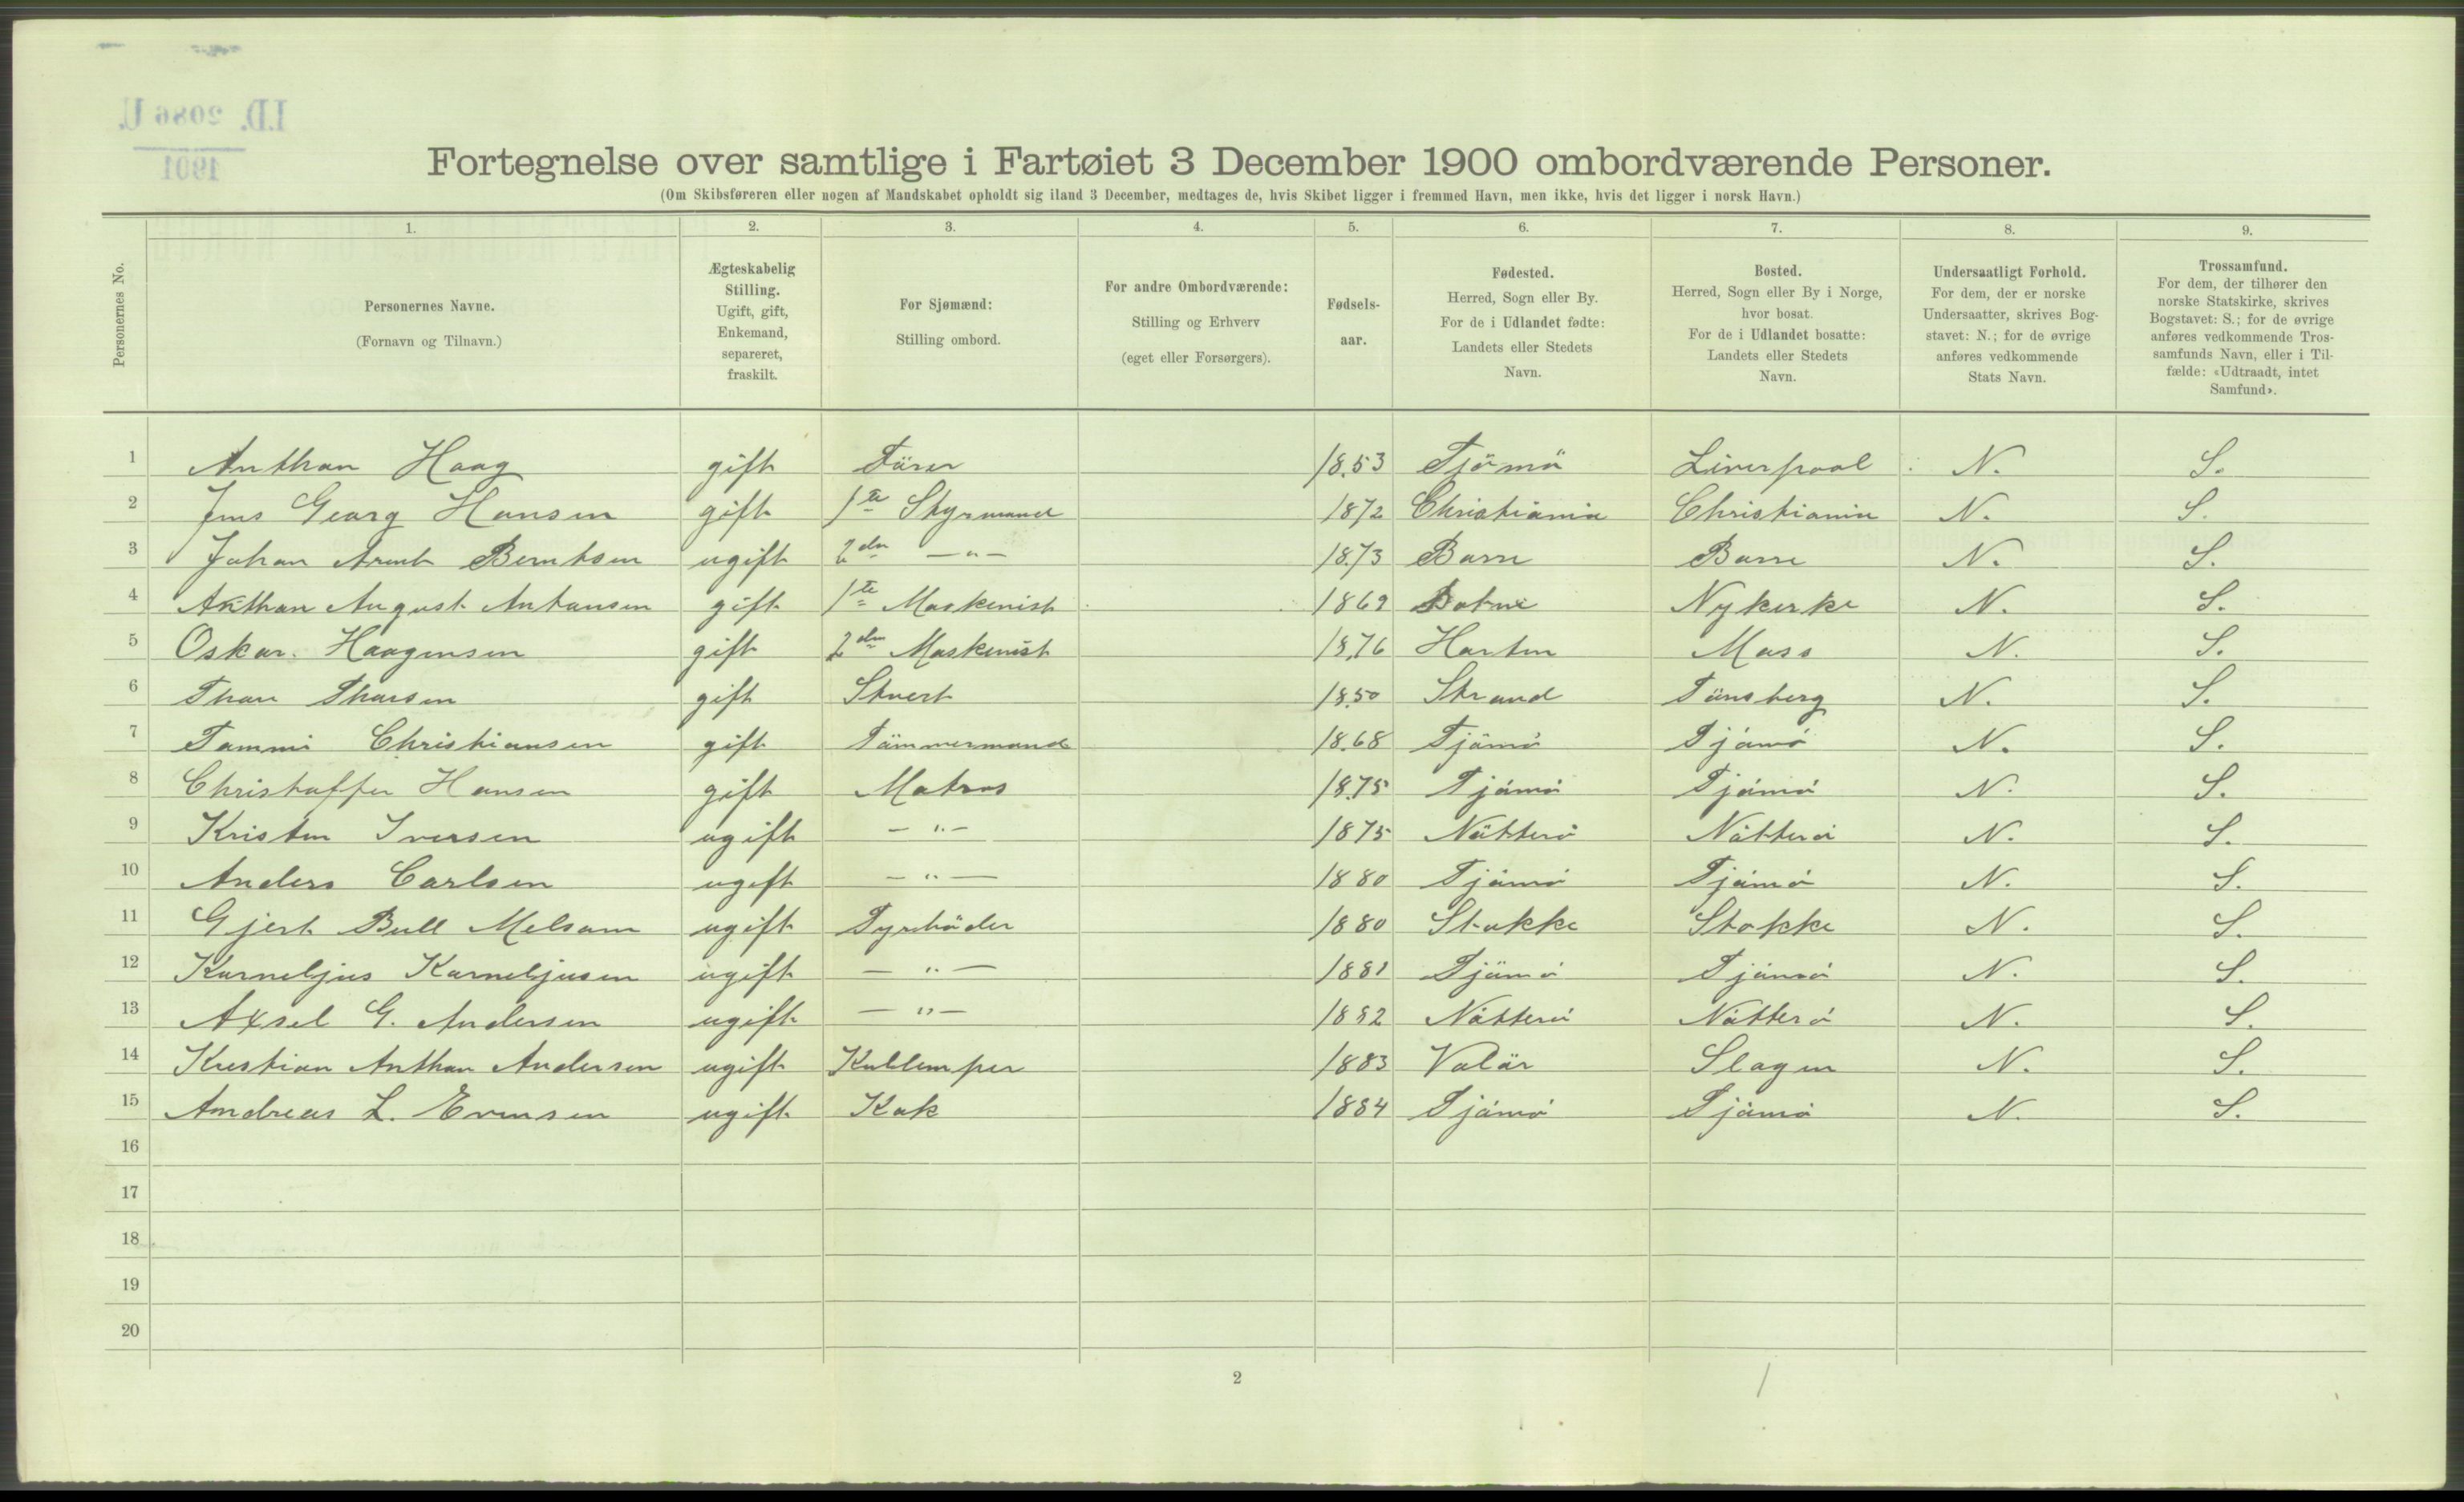 I.D. 2086 U.
1901
Fortegnelse over samtlige i Fartøiet 3 December 1900 ombordværende Personer.
(Om Skibsføreren eller nogen af Mandskabet opholdt sig iland 3 December, medtages de, hvis Skibet ligger i fremmed Havn, men ikke, hvis det ligger i norsk Havn.)
1. 2. 3. 4. 5. 6. 7. 8. 9.
Personernes No.
Personernes Navne.
(Fornavn og Tilnavn.)
Ægteskabelig
Stilling.
Ugift, gift,
Enkemand,
separeret,
fraskilt.
For Sjømænd:
Stilling ombord.
For andre Ombordværende:
Stilling og Erhverv
(eget eller Forsørgers).
Fødsels-
aar.
Fødested.
Herred, Sogn eller By.
For de i Udlandet fødte:
Landets eller Stedets
Navn.
Bosted.
Herred, Sogn eller By i Norge,
hvor bosat.
For de i Udlandet bosatte:
Landets eller Stedets
Navn.
Undersaatligt Forhold.
For dem, der er norske
Undersaatter, skrives Bog-
stavet: N.; for de øvrige
anføres vedkommende
Stats Navn.
Trossamfund.
For dem, der tilhører den
norske Statskirke, skrives
Bogstavet: S.; for de øvrige
anføres vedkommende Tros-
samfunds Navn, eller i Til-
fælde: «Udtraadt, intet
Samfund».
1 Anthon Haag gift Förer 1853 Tjömö Liverpool N. S.
2 Jens Georg Hansen gift 1te Styrmand 1872 Christiania Christiania N. S.
3 Johan Arent Berntsen ugift 2den —"— 1873 Borre Borre N. S.
4 Anthon August Antonsen gift 1te Maskenist 1869 Botne Nykerke N. S.
5 Oskar Haagensen gift 2den Maskenist 1876 Horten Moss N. S.
6 Thor Thorsen gift Stuert 1850 Strand Tönsberg N. S.
7 Tommi Christiansen gift Tömmermand 1868 Tjömö Tjömö N. S.
8 Christoffer Hansen gift Matros 1875 Tjömö Tjömö N. S.
9 Kristen Iversen ugift —"— 1875 Nötterö Nötterö N. S.
10 Anders Carlsen ugift —"— 1880 Tjömö Tjömö N. S.
11 Gjert Bull Melsom ugift Fyrböder 1880 Stokke Stokke N. S.
12 Korneljus Korneljusen ugift —"— 1881 Tjömö Tjömö N. S.
13 Axsel G. Andersen ugift —"— 1882 Nötterö Nötterö N. S.
14 Krestian Anthon Andersen ugift Kullemper 1883 Valör Slagen N. S.
15 Andreas L. Evensen ugift Kok 1884 Tjömö Tjömö N. S.
16
17
18
19
20
2